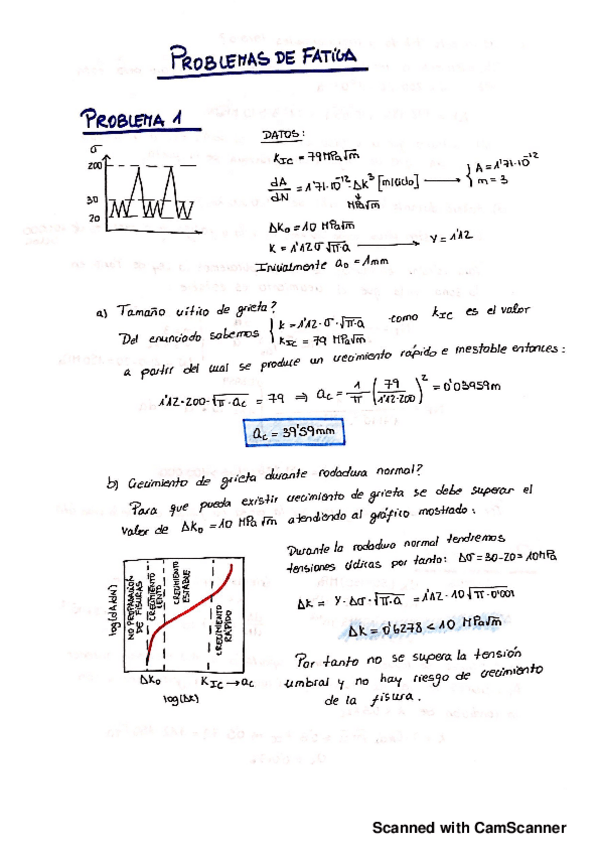 PROBLEMAS DE FATIGA
PROBLEMA 1
σ
200
30
20
DATOS:
K_IC = 79 MPa√m
dA/dN = 1'71·10^-12·ΔK^3 [m/ciclo] → { A = 1'71·10^-12
m = 3
MPa√m
ΔK₀ = 10 MPa√m
K = 1'12σ√π·a → Y = 1'12
Inicialmente a₀ = 1mm
a) Tamaño crítico de grieta?
Del enunciado sabemos { K = 1'12·σ·√π·a
K_IC = 79 MPa√m
como K_IC es el valor
a partir del cual se produce un crecimiento rápido e inestable entonces:
1'12·200·√π·a_c = 79 ⇒ a_c = 1/π (79/1'12·200)^2 = 0'03959m
a_c = 39'59mm
b) Crecimiento de grieta durante rodadura normal?
Para que pueda existir crecimiento de grieta se debe superar el
valor de ΔK₀ = 10 MPa√m atendiendo al gráfico mostrado:
log(dA/dN)
NO PROPAGACIÓN
DE FISURAS
CRECIMIENTO
LENTO
CRECIMIENTO
ESTABLE
CRECIMIENTO
RÁPIDO
ΔK₀
K_IC → a_c
log(ΔK)
Durante la rodadura normal tendremos
tensiones cíclicas por tanto: Δσ = 30-20 = 10MPa
ΔK = Y·Δσ·√π·a = 1'12·10√π·0'001
ΔK = 0'6278 < 10 MPa√m
Por tanto no se supera la tensión
umbral y no hay riesgo de crecimiento
de la fisura.
Scanned with CamScanner